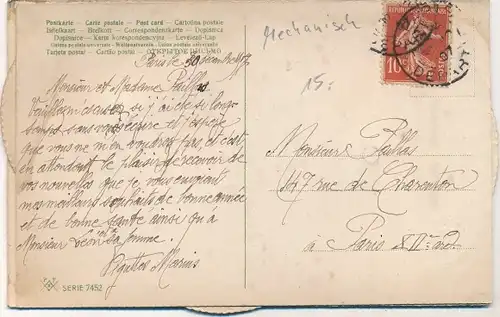 Postkarte – Carte postale – Post card – Cartolina postale
Briefkaart – Brefkort – Correspondenzkarte – Dopisnica
Dopisnice – Karta korespondencyjna – Levelező-Lap
Tarjeta postal – Cartão postal – ОТКРЫТОЕ ПИСЬМО
Mechanisch
15.-
10
Paris le 30 décembre 1907
Monsieur et Madame Paillas
Veuillez m'excuser si j'ai été si longtemps
sans vous écrire et j'espère
que vous ne m'en voudrez pas, et c'est
en attendant le plaisir de recevoir de
vos nouvelles que je vous envoient
mes meilleurs souhaits de bonne année
et de bonne santé ainsi qu'a
Monsieur Léon et sa femme.
Marius
Monsieur Paillas
147 rue de Charenton
à Paris XIIe ard
SERIE 7452